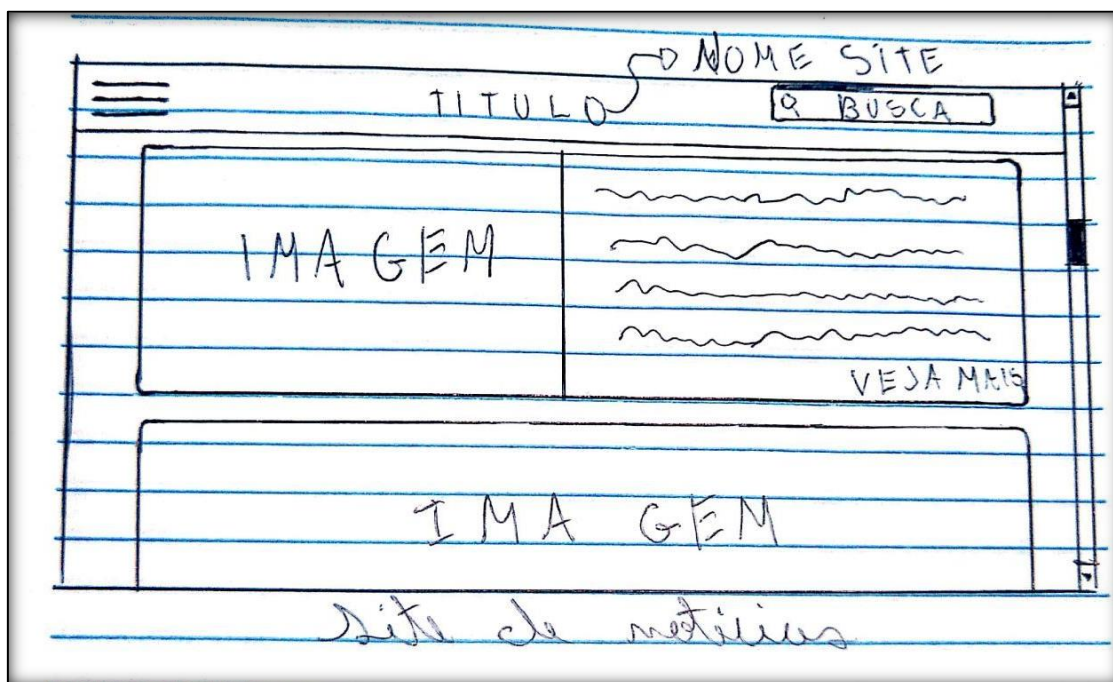 NOME SITE
TITULO
BUSCA
IMAGEM
VEJA MAIS
IMAGEM
Site de notícias